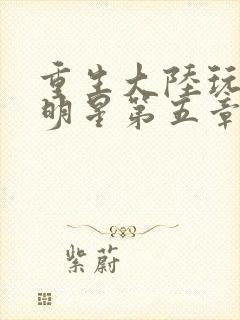 重生大陸玩
明星第五章
紫蔚